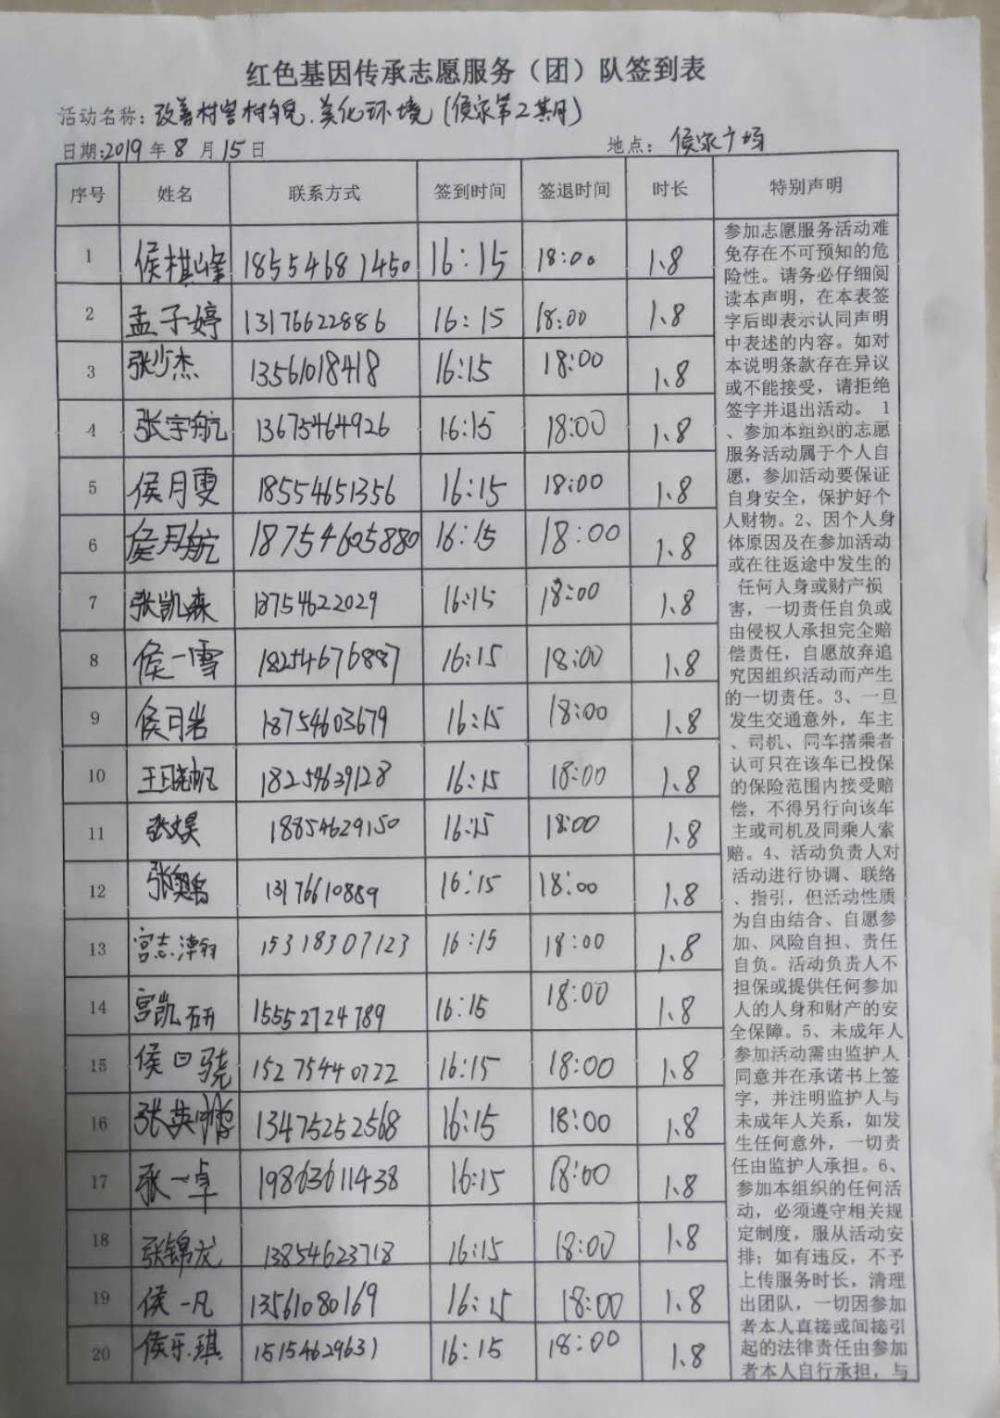 红色基因传承志愿服务（团）队签到表
活动名称：改善村容村貌.美化环境（侯家第2期）
日期:2019年8月15日 地点：侯家广场
序号 姓名 联系方式 签到时间 签退时间 时长 特别声明
1 侯棋峰 18554681450 16:15 18:00 1.8
2 孟子婷 13176622886 16:15 18:00 1.8
3 张少杰 13561018418 16:15 18:00 1.8
4 张宇航 13675464926 16:15 18:00 1.8
5 侯月雯 18554651356 16:15 18:00 1.8
6 侯月航 18754605880 16:15 18:00 1.8
7 张凯森 18754622029 16:15 18:00 1.8
8 侯一雪 18254676887 16:15 18:00 1.8
9 侯月岩 18754603679 16:15 18:00 1.8
10 18254639128 16:15 18:00 1.8
11 张昊 18854629150 16:15 18:00 1.8
12 13176610889 16:15 18:00 1.8
13 宫志 15318307123 16:15 18:00 1.8
14 宫凯研 15552724789 16:15 18:00 1.8
15 侯日骁 15275440722 16:15 18:00 1.8
16 张英 13475252568 16:15 18:00 1.8
17 张一卓 19863611438 16:15 18:00 1.8
18 张锦龙 13854623718 16:15 18:00 1.8
19 侯一凡 13561080169 16:15 18:00 1.8
20 侯乐琪 15154629631 16:15 18:00 1.8
参加志愿服务活动难
免存在不可预知的危
险性。请务必仔细阅
读本声明，在本表签
字后即表示认同声明
中表述的内容。如对
本说明条款存在异议
或不能接受，请拒绝
签字并退出活动。 1
、参加本组织的志愿
服务活动属于个人自
愿，参加活动要保证
自身安全，保护好个
人财物。2、因个人身
体原因及在参加活动
或在往返途中发生的
任何人身或财产损
害，一切责任自负或
由侵权人承担完全赔
偿责任，自愿放弃追
究因组织活动而产生
的一切责任。3、一旦
发生交通意外，车主
、司机、同车搭乘者
认可只在该车已投保
的保险范围内接受赔
偿，不得另行向该车
主或司机及同乘人索
赔。4、活动负责人对
活动进行协调、联络
、指引，但活动性质
为自由结合、自愿参
加、风险自担、责任
自负。活动负责人不
担保或提供任何参加
人的人身和财产的安
全保障。5、未成年人
参加活动需由监护人
同意并在承诺书上签
字，并注明监护人与
未成年人关系，如发
生任何意外，一切责
任由监护人承担。6、
参加本组织的任何活
动，必须遵守相关规
定制度，服从活动安
排；如有违反，不予
上传服务时长，清理
出团队，一切因参加
者本人直接或间接引
起的法律责任由参加
者本人自行承担，与